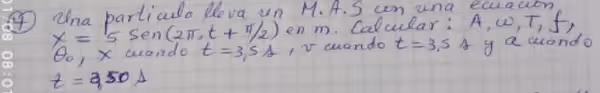 ④ Una particula lleva un M.A.S con una ecuación,
X = 5 Sen(2π.t + π/2) en m. Calcular: A, ω, T, f,
θ₀, x cuando t = 3,5 s, v cuando t = 3,5 s y a cuando
t = 3,50 s